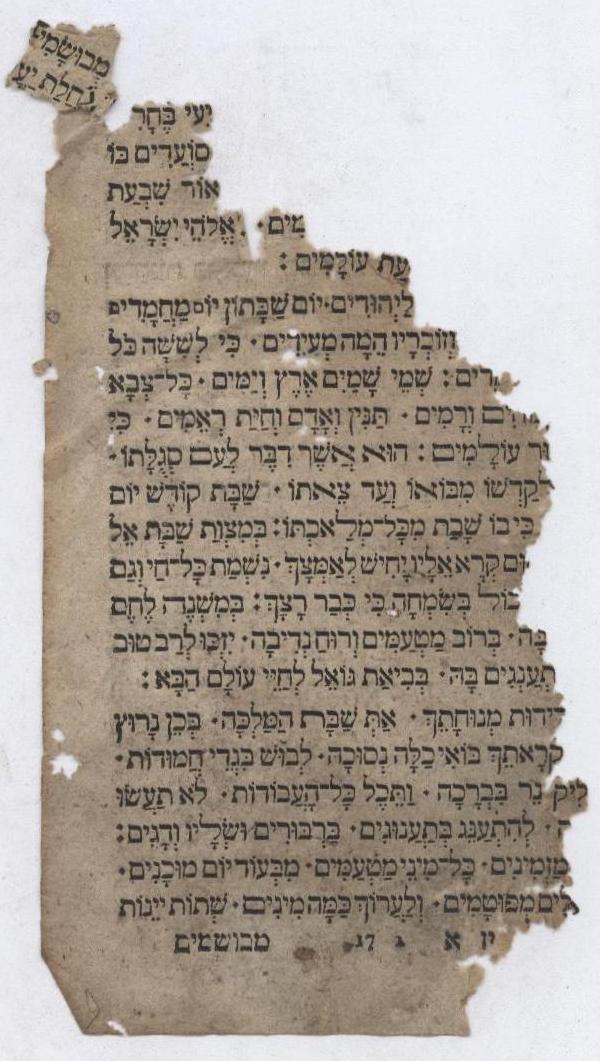 מְבוּשָׂמִי
נַחֲלַת יַעֲ
יְעִי בֶּחָרִ
סוֹעֲדִים בּוֹ
אוֹר שִׁבְעַת
מִים · אֱלֹהֵי יִשְׂרָאֵל
עַת עוֹלָמִים :
לַיְהוּדִים · יוֹם שַׁבָּתוֹן יוֹם מַחֲמַדִּים
הֵמָּה מְעִידִים · כִּי לְשִׁשָּׁה כֹּל
שְׁמֵי שָׁמַיִם אֶרֶץ וְיַמִּים · כָּל־צְבָא
וְרָמִים · תַּנִּין וְאָדָם וְחַיַּת רְאֵמִים · כִּי
עוֹלָמִים : הוּא אֲשֶׁר דִּבֶּר לְעַם סְגֻלָּתוֹ ·
לְקַדְּשׁוֹ מִבּוֹאוֹ וְעַד צֵאתוֹ · שַׁבַּת קוֹדֶשׁ יוֹם
כִּי בוֹ שָׁבַת מִכָּל־מְלַאכְתּוֹ : בְּמִצְוַת שַׁבָּת אֵל
קְרָא אֵלָיו יָחִישׁ לְאַמְּצָךְ · נִשְׁמַת כָּל־חַי וְגַם
בְּשִׂמְחָה כִּי כְּבַר רָצָךְ : בְּמִשְׁנֶה לֶחֶם
בָּה · בְּרוֹב מַטְעַמִּים וְרוּחַ נְדִיבָה · יִזְכּוּ לְרַב טוּב
תְעַנְּגִים בָּהּ · בְּבִיאַת גּוֹאֵל לְחַיֵּי עוֹלָם הַבָּא :
דִידוּת מְנוּחָתֵךְ · אַתְּ שַׁבָּת הַמַּלְכָּה · בְּכֵן נָרוּץ
קְרָאתֵךְ בּוֹאִי כַלָּה נְסוּכָה · לְבוּשׁ בִּגְדֵי חֲמוּדוֹת ·
לִיק נֵר בִּבְרָכָה · וַתֵּכֶל כָּל־הָעֲבוֹדוֹת · לֹא תַעֲשׂוּ
ה · לְהִתְעַנֵּג בְּתַעֲנוּגִים · בַּרְבּוּרִים וּשְׂלָיו וְדָגִים :
מַזְמִינִים · כָּל־מִינֵי מַטְעַמִּים · מִבְּעוֹד יוֹם מוּכָנִים ·
לִים מְפוּטָּמִים · וְלַעֲרוֹךְ כַּמָּה מִינִים · שְׁתוֹת יֵינוֹת
יז א 17 מבושמים